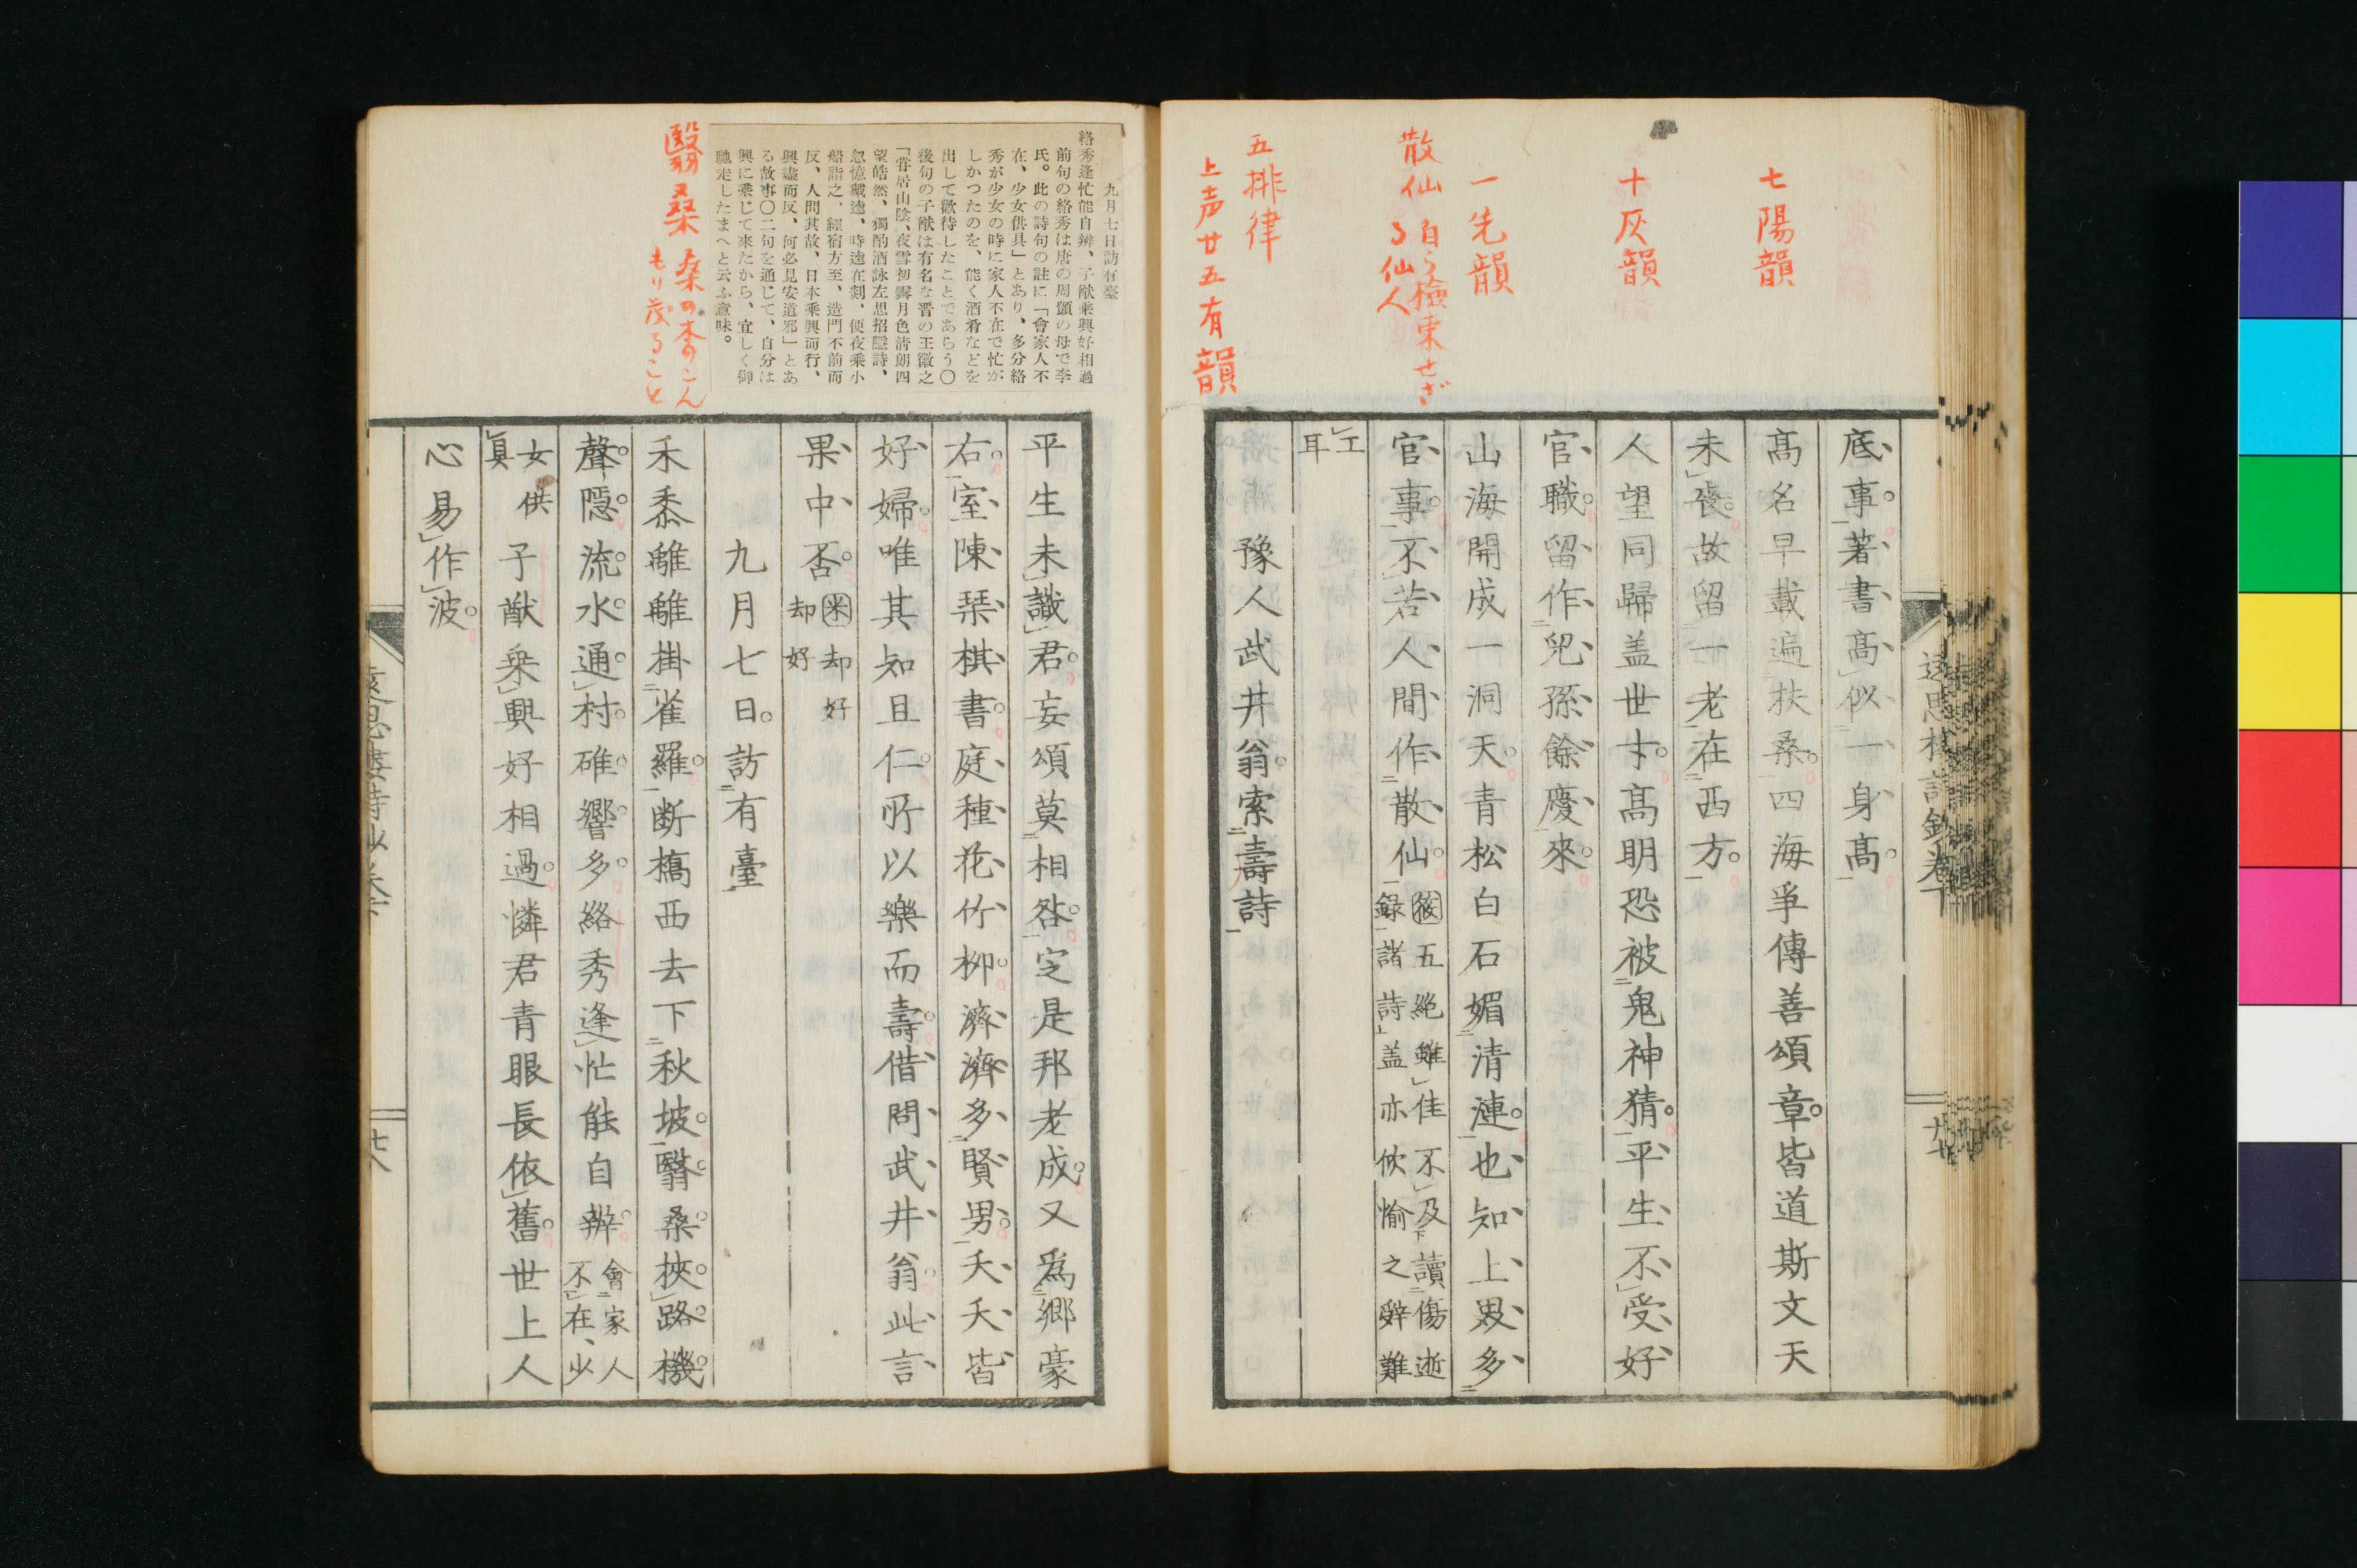 七陽韻
十灰韻
一先韻
散仙 自ら檢束せざ
る仙人
五排律
上声廿五有韻
底事著書髙似一身髙
髙名早載遍扶桑四海爭傳善頌章皆道斯文天
未喪故留一老在西方
人望同歸盖世才髙明恐被鬼神猜平生不受好
官職留作兒孫餘慶來
山海開成一洞天青松白石媚清漣也知上界多
官事不若人間作散仙 筱五絕雖佳不及讀傷逝
錄諸詩盖亦佽愉之辭難
工
耳
豫人武井翁索壽詩
遠思樓詩鈔卷下
廿七
九月七日訪有臺
絡秀逢忙能自辨、子猷乗興好相過
前句の絡秀は唐の周顗の母で李
氏。此の詩句の註に「會家人不
在、少女供具」とあり、多分絡
秀が少女の時に家人不在で忙が
しかつたのを、能く酒肴などを
出して歡待したことであらう〇
後句の子猷は有名な晋の王徽之
「甞居山陰、夜雪初霽月色清朗四
望皓然、獨酌酒詠左思招隠詩、
忽憶戴逵、時逵在剡、便夜乗小
船詣之、經宿方至、造門不前而
反、人問其故、日本乗興而行、
興盡而反、何必見安道邪」とあ
る故事〇二句を通じて、自分は
興に乗じて來たから、宜しく御
馳走したまへと云ふ意味。
翳桑 桑の木のこん
もり茂ること
平生未識君妄頌莫相咎定是邦老成又爲鄉豪
右室陳琹棋書庭種花竹柳濟濟多賢男夭夭皆
好婦唯其知且仁所以樂而壽借問武井翁此言
果中否 米却好
却好
九月七日訪有臺
禾黍離離掛雀羅断橋西去下秋坡翳桑挾路機
聲隠流水通村碓響多絡秀逢忙能自辨 會家人
不在、少
女供
具 子猷乗興好相過憐君青眼長依舊世上人
心易作波
遠思樓詩鈔卷下
廿八